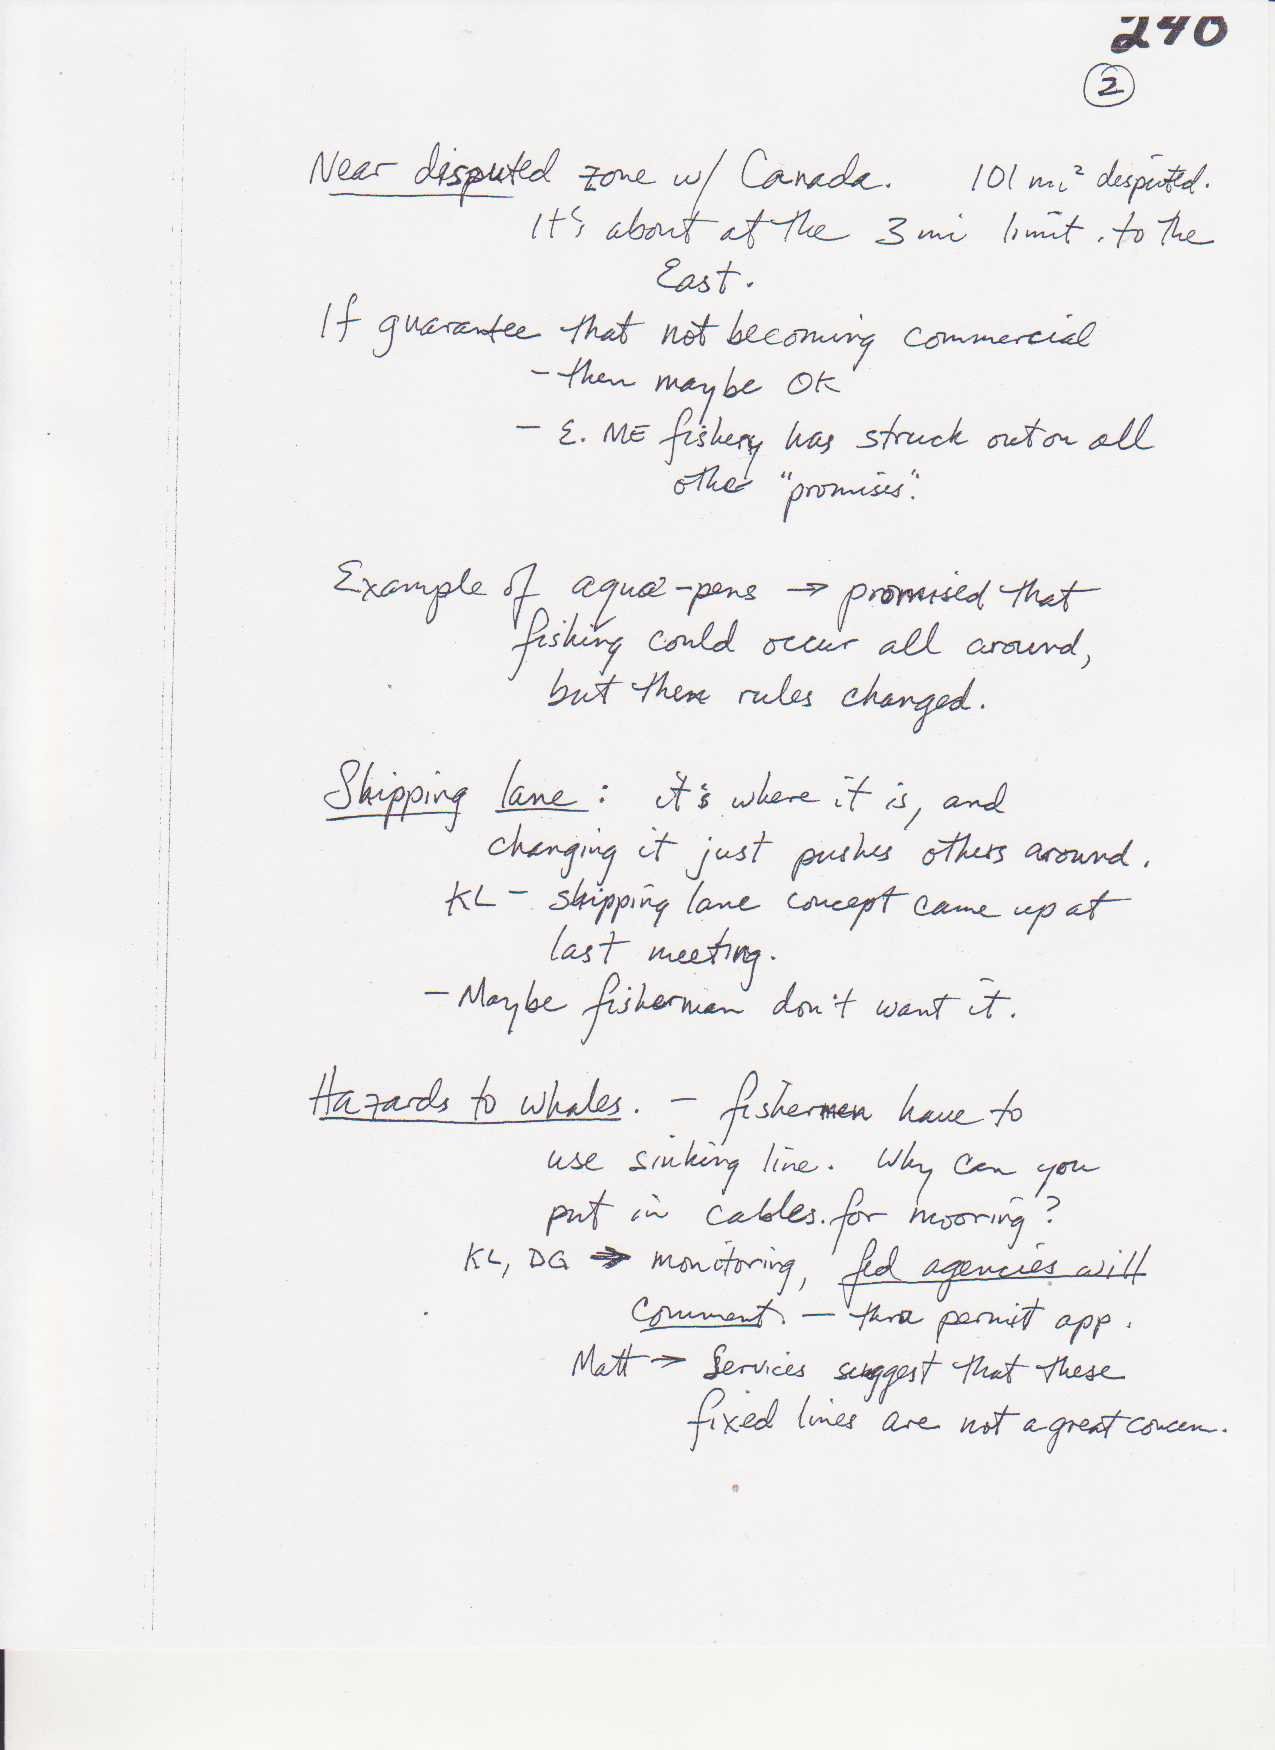 240
2
Near disputed zone w/ Canada. 101 mi² disputed.
It's about at the 3 mi limit. to the
East.
If guarantee that not becoming commercial
- then maybe OK
- E. ME fishery has struck out on all
other "promises".
Example of aqua-pens → promised that
fishing could occur all around,
but then rules changed.
Shipping lane: it's where it is, and
changing it just pushes others around.
KL - shipping lane concept came up at
last meeting.
- Maybe fisherman don't want it.
Hazards to whales. - fishermen have to
use sinking line. Why can you
put in cables. for mooring?
KL, DG → monitoring, fed agencies will
comment. - thru permit app.
Matt → Services suggest that these
fixed lines are not a great concern.